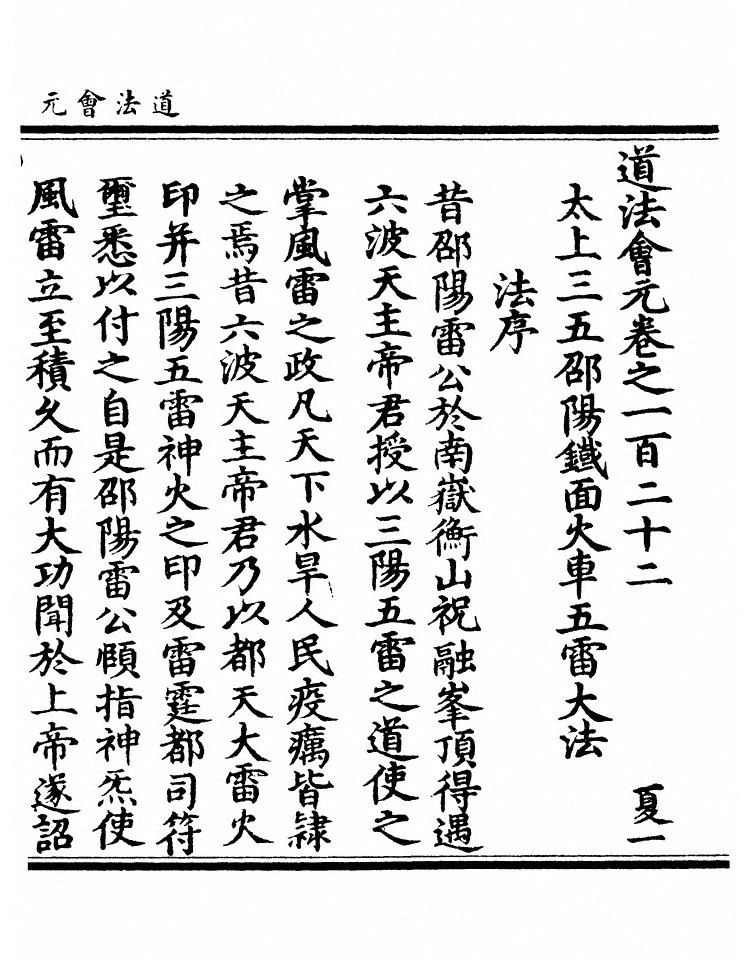 道法會元
道法會元卷之一百二十二
夏一
太上三五邵陽鐵面火車五雷大法
法序
昔邵陽雷公於南嶽衡山祝融峯頂得遇
六波天主帝君授以三陽五雷之道使之
掌風雷之政凡天下水旱人民疫癘皆隸
之焉昔六波天主帝君乃以都天大雷火
印并三陽五雷神火之印及雷霆都司符
璽悉以付之自是邵陽雷公頤指神炁使
風雷立至積久而有大功聞於上帝遂詔